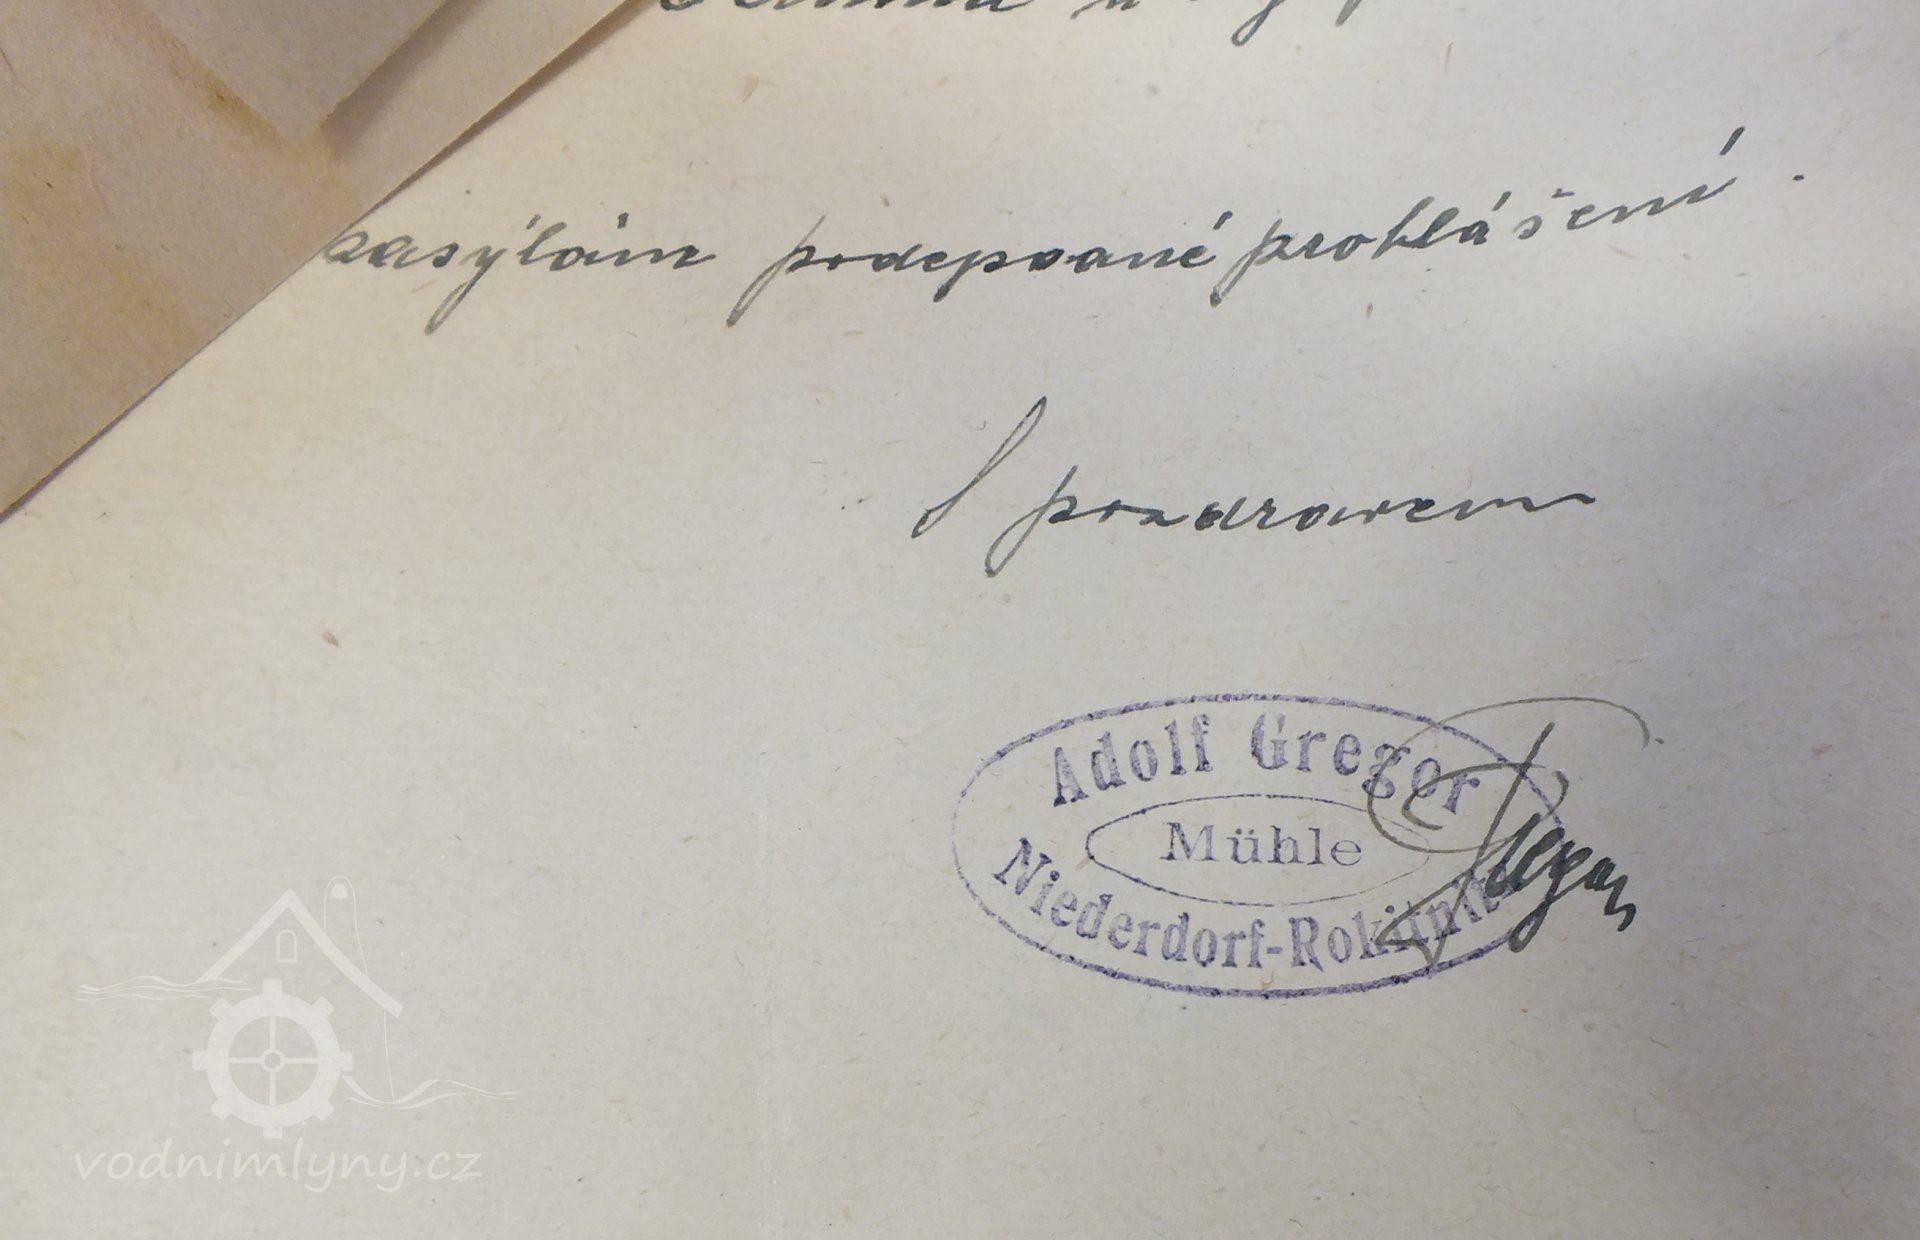 zasýlám podepsané prohlášení.
S pozdravem
Adolf Gregor
Mühle
Niederdorf-Rokitnitz
Gregor
vodnimlyny.cz